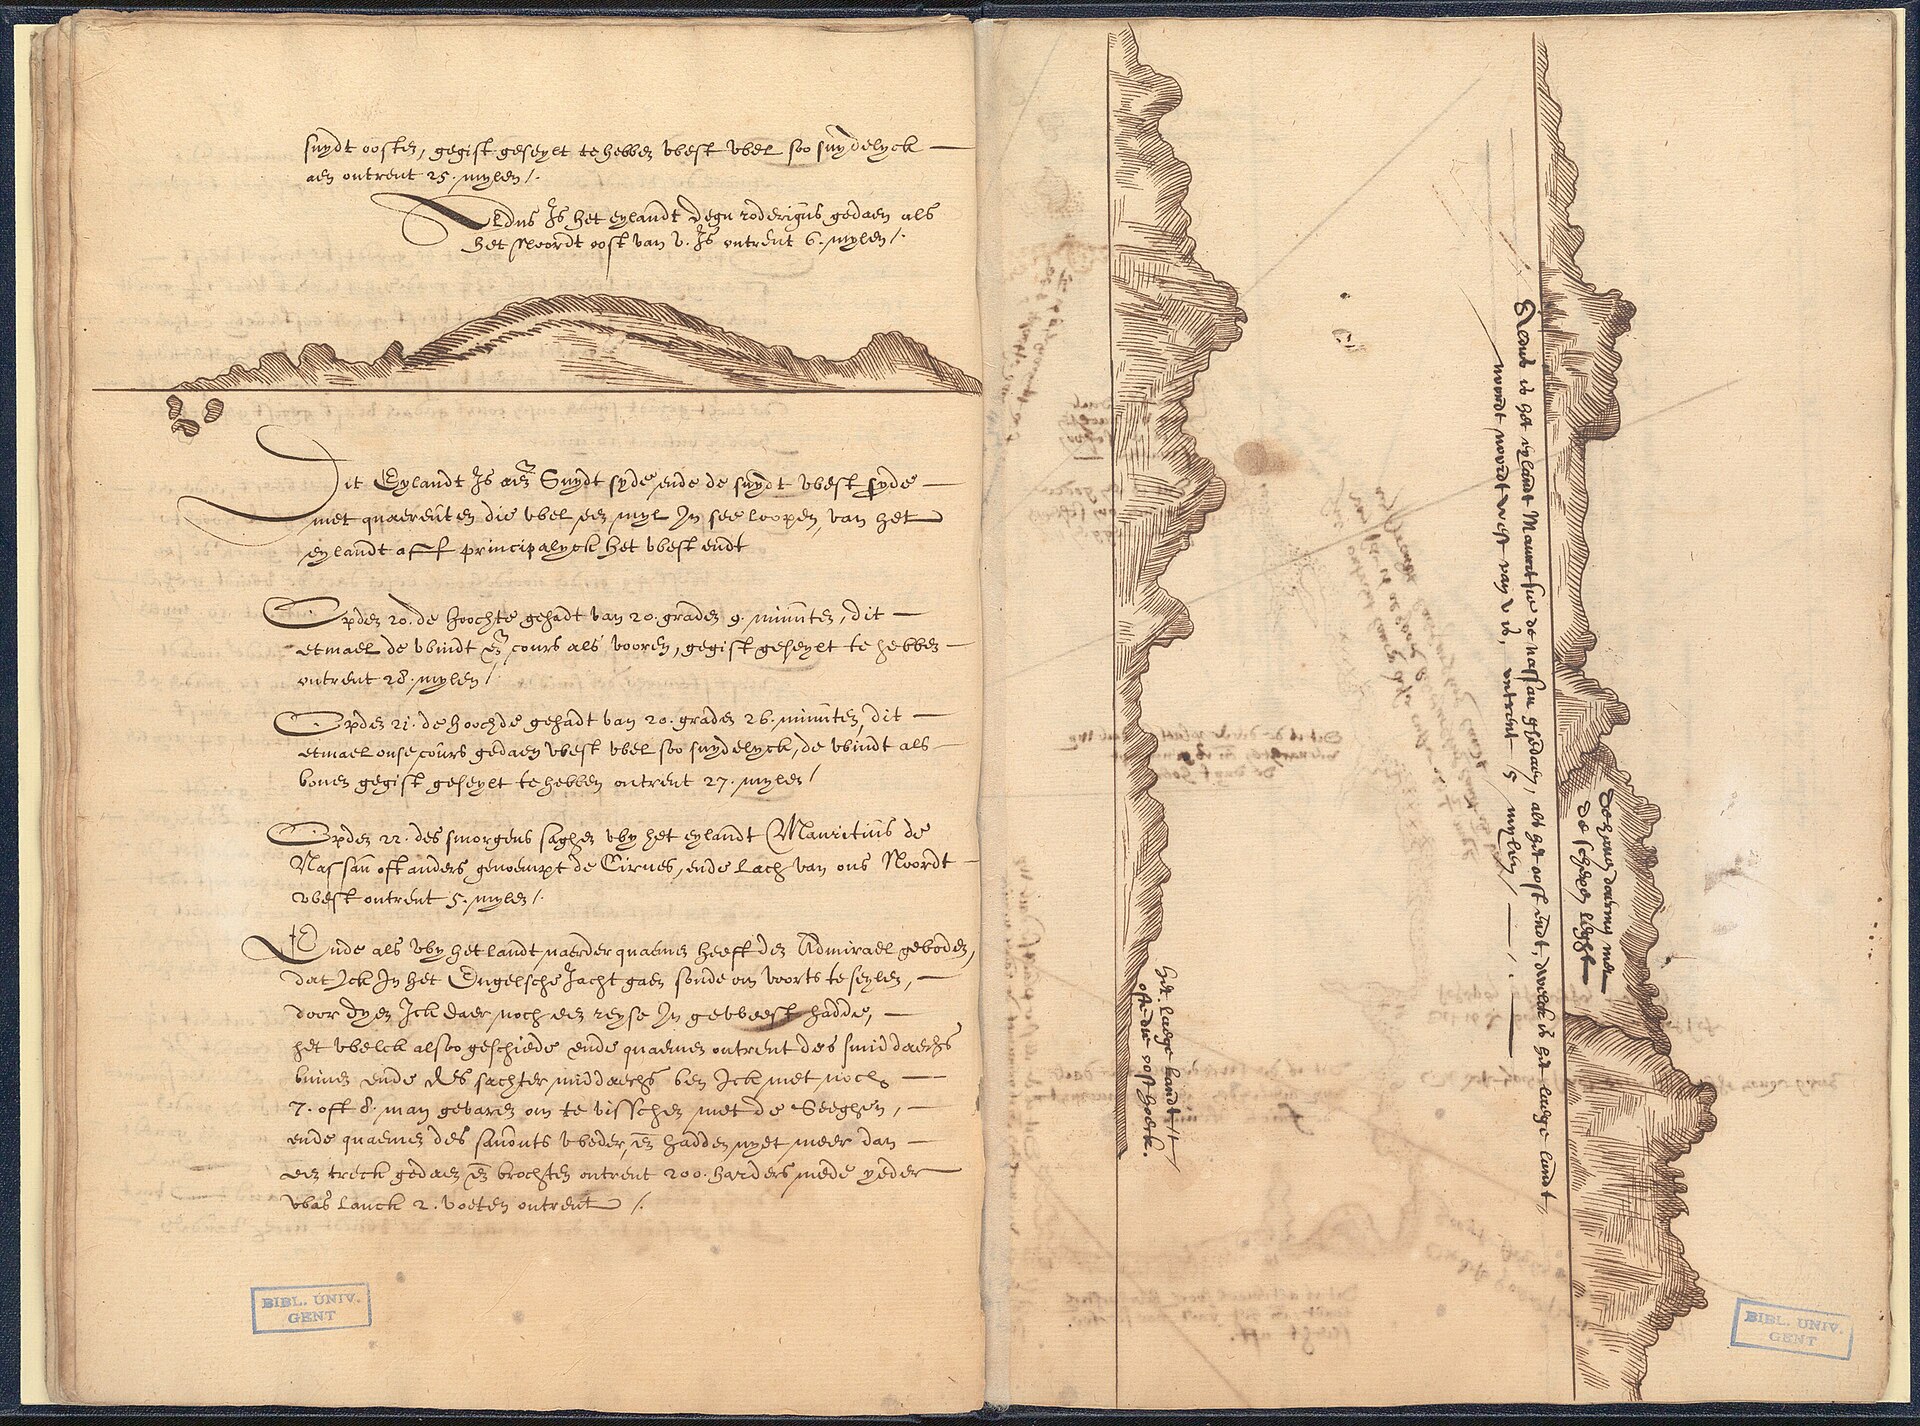 suydt oosten, gegist geseylt te hebben vvest vvel soo suydelyck
aen ontrent 25. mylen /.
Aldus Is het eylandt degu roderigus gedaen als
het Noordt oost van v. Is ontrent 6. mylen /.
Dit Eylandt Is aen Suydt syde ende de suydt vvest syde
met quaerenten die vvel een myl In see loopen, van het
eylandt aff principalyck het vvest endt
Opden 20. de hoochte gehadt van 20. graden 9. minuten, dit
etmael de vvindt en cours als vooren, gegist geseylt te hebben
ontrent 28. mylen /.
Opden 21. de hoochde gehadt van 20. graden 26. minuten, dit
etmael onse cours gedaen vvest vvel soo suydelyck, de vvindt als
boven gegist geseylt te hebben ontrent 27. mylen /
Opden 22. des smorgens saghen vvy het eylandt Mauritius de
Nassau oft anders genoempt de Cirnes, ende lach van ons Noordt
vvest ontrent 5. mylen /.
Ende als vvy het landt naerder quamen heeft den Admirael geboden,
dat Ick In het Engelsche Jacht gaen soude om voorts te seylen,
door dyen Ick daer noch een reyse In gevveest hadde,
het vvelck alsoo geschiede ende quamen ontrent des smiddaechs
binnen ende des sachter middaechs ben Ick met noch
7. oft 8. man gevaren om te visschen met de Seeghen,
ende quamen des savonts vveder, en hadden nyet meer dan
een treck gedaen en brochten ontrent 200. harders mede yeder
vvas lanck 2. voeten ontrent /.
BIBL. UNIV.
GENT
het laege landt
ofte die oost hoeck.
Aldus is het eylandt Mauritsius de nassau ghedaen, als het oost endt, dwelck is het laege landt,
noordt noordt west van v is, ontrent 5 mylen
De haven daermen met
de schepen lyght
BIBL. UNIV.
GENT